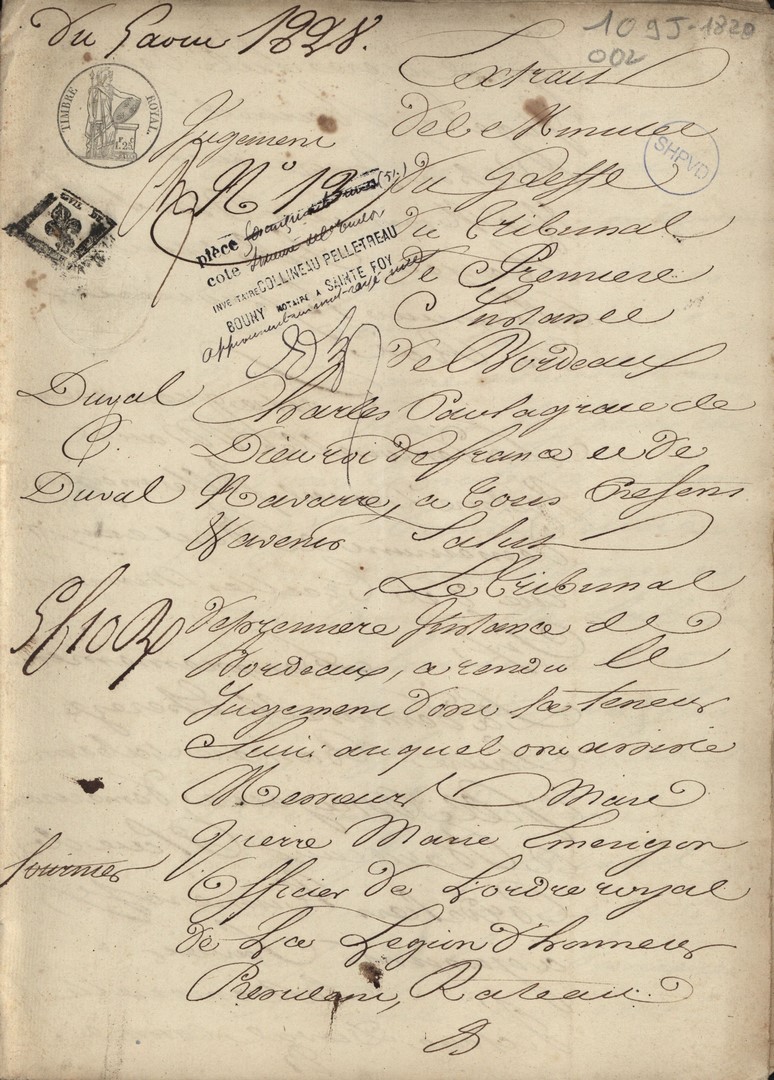 Du 5 aout 1828.
109J-1820
002
Extrait
TIMBRE ROYAL
Jugement
des Minutes
SHPVD
N° 13
du Greffe
pièce
du Tribunal
cote
de Premiere
INVENTAIRE COLLINEAU PELLETREAU
Instance
BOUNY NOTAIRE A SAINTE FOY
de Bordeaux
Duval
Charles Par la grace de
C.
Dieu roi de france et de
Duval
Navarre, a Tous Presens
Et avenir Salut
Le Tribunal
de premiere Instance de
Bordeaux, a rendu le
Jugement dont la teneur
Suit: auquel ont assisté
Messieurs Marc
pierre Marie Emerigon
fournier
Officier de L'ordre royal
de La Legion d'honneur
President, Rateau